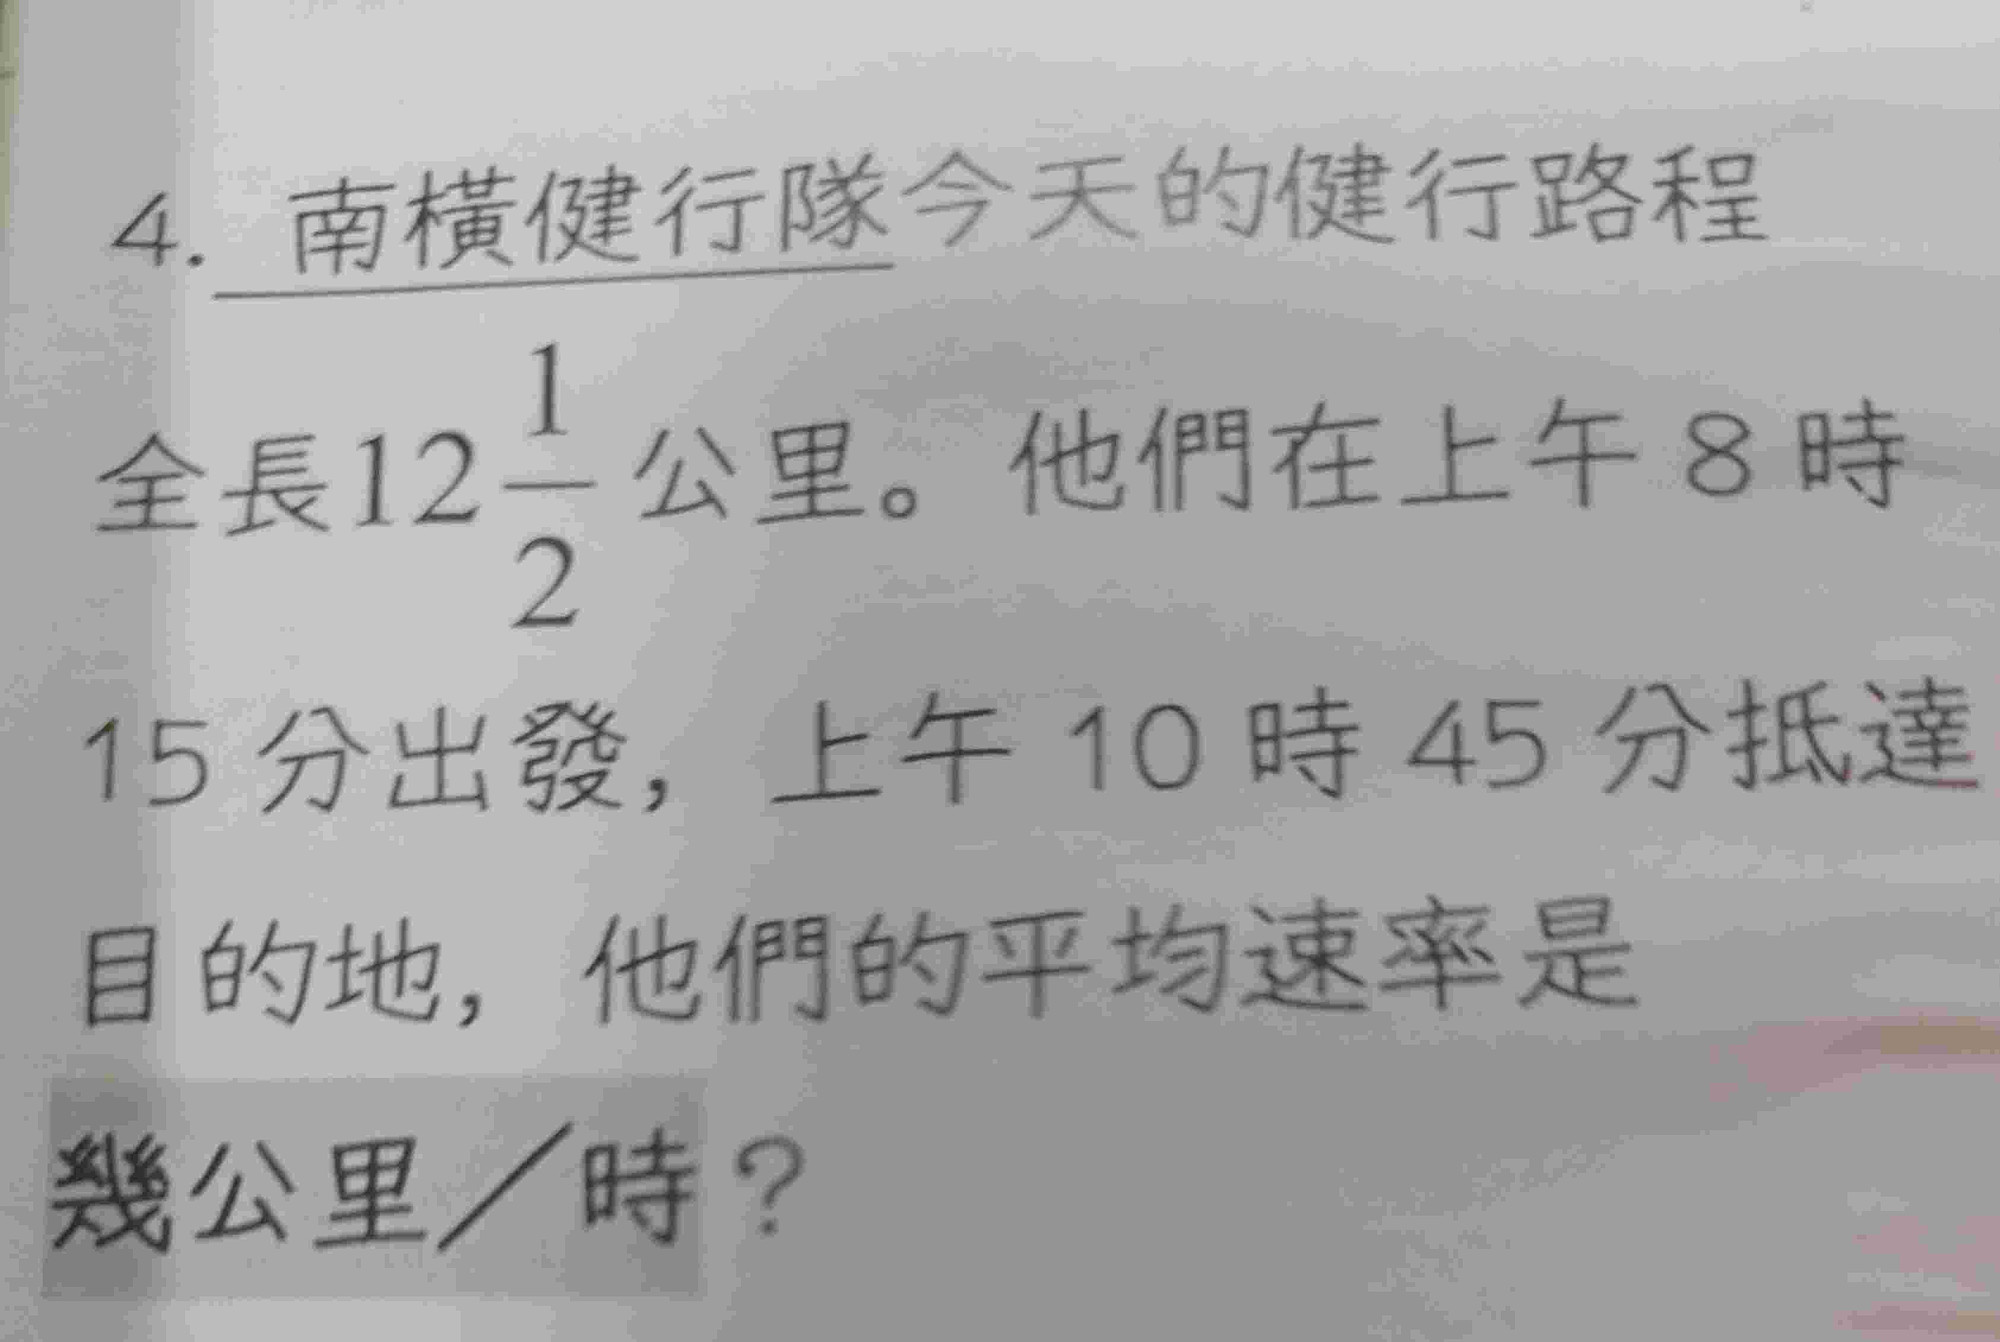 4. 南橫健行隊今天的健行路程
全長12 1/2 公里。他們在上午 8 時
15 分出發，上午 10 時 45 分抵達
目的地，他們的平均速率是
幾公里／時？